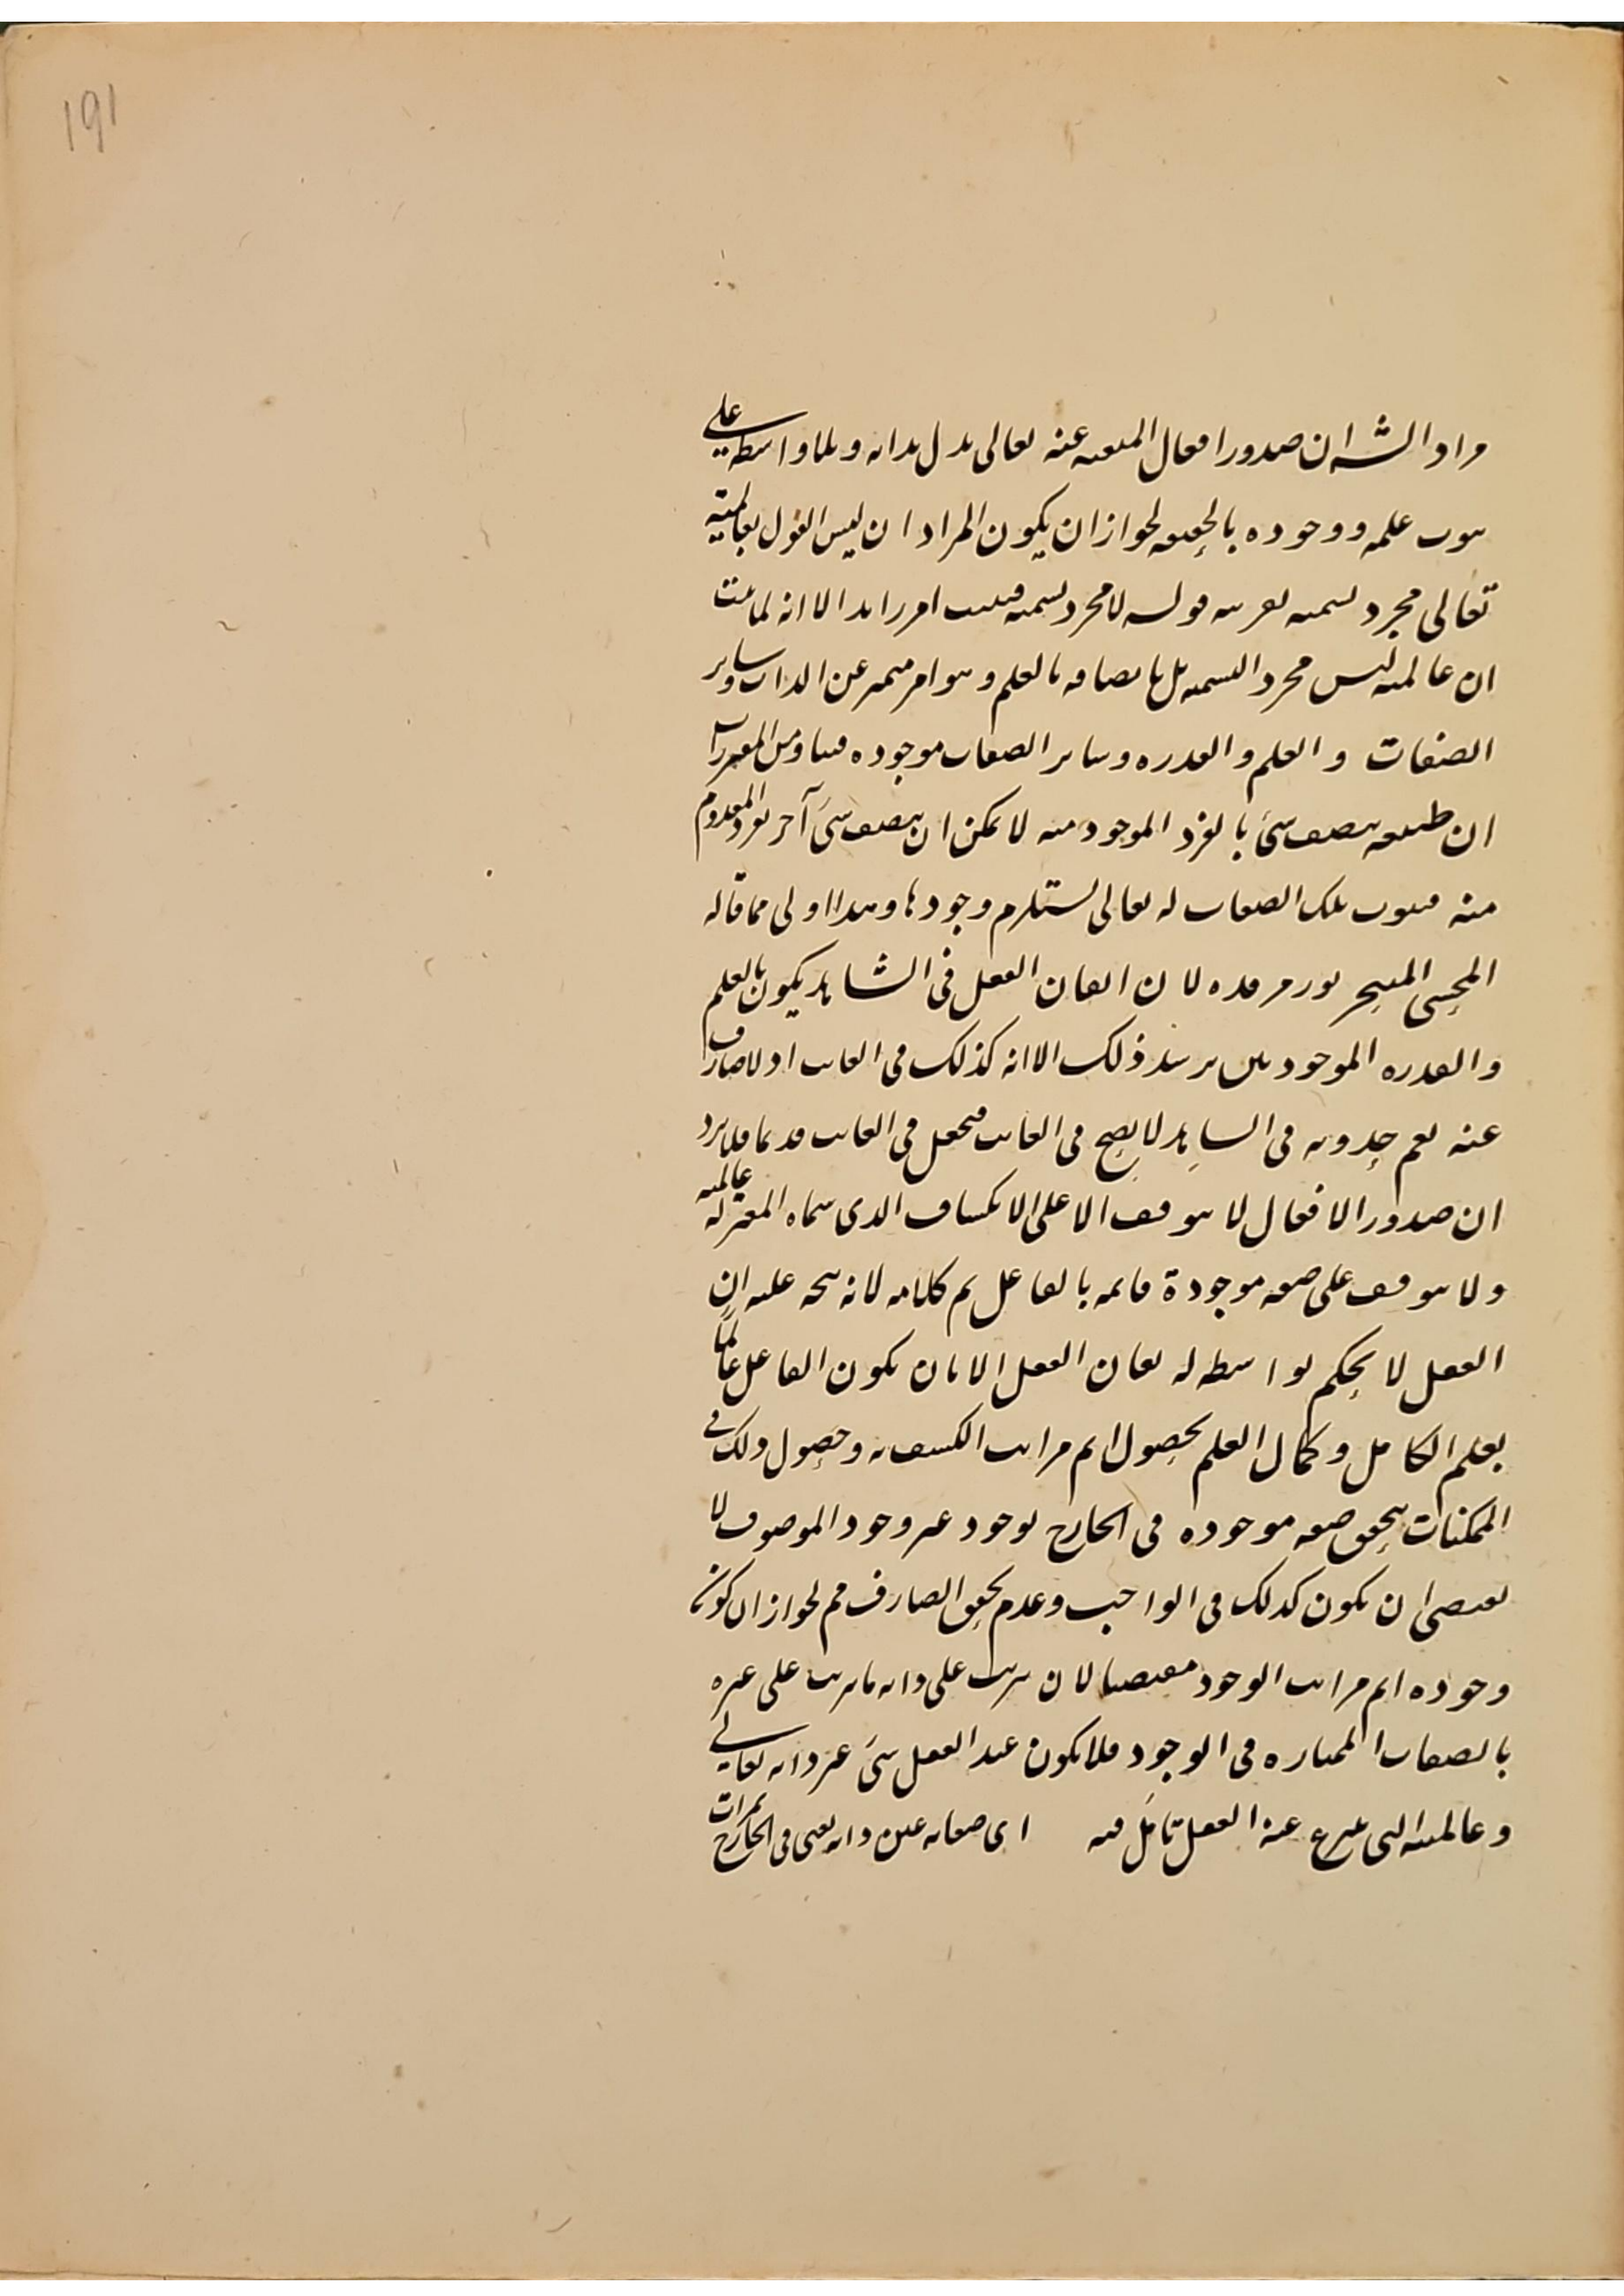 191
مراد الشه ان صدور افعال المتقنه عنه تعالى يدل بذاته وبلا واسطه على
ثبوت علمه ووجوده بالحقيقه لجواز ان يكون المراد ان ليس القول بعالميته
تعالى مجرد تسميه بقرينه قوله لا مجرد تسميه فيثبت امر زايد الا انه لما ثبت
ان عالميته ليس مجرد التسميه بل باتصافه بالعلم وهو امر متميز عن الذات وساير
الصفات والعلم والقدره وساير الصفات موجوده فينا ومن المقررات
ان طبيعه يتصف شئ بالفرد الموجود منه لا يمكن ان يتصف شئ آخر بفرد المعدوم
منه فثبوت تلك الصفات له تعالى يستلزم وجودها وهذا اولى مما قاله
المحشى المتبحر نور مرقده لان اتقان الفعل فى الشاهد يكون بالعلم
والقدره الموجودين يرشد ذلك الا انه كذلك فى الغايب اذ لا صارف
عنه نعم حدوثه فى الشاهد لا يصح فى الغايب فيجعل فى الغايب قديما فلا يرد
ان صدور الافعال لا يتوقف الا على الانكشاف الذى سماه المعتزله عالميه
ولا يتوقف على صفه موجودة قايمه بالفاعل تم كلامه لانه يتجه عليه ان
العقل لا يحكم بواسطه له تقان الفعل الا بان يكون الفاعل عالما
بعلم الكامل وكمال العلم بحصول اتم مراتب الكشف وحصول ذلك فى
الممكنات بتحقق صفه موجوده فى الخارج بوجود غير وجود الموصوف لا
يقتضى ان يكون كذلك فى الواجب وعدم تحقق الصارف مم لجواز ان كون
وجوده اتم مراتب الوجود مقتضيا لان يترتب على ذاته ما يترتب على غيره
بالصفات الممتازه فى الوجود فلا يكون عند العقل شئ غير ذاته تعالى
وعالميته التى ينتزع عنه العقل تامل فيه اى صفاته عين ذاته يعنى فى الخارج ثمرات